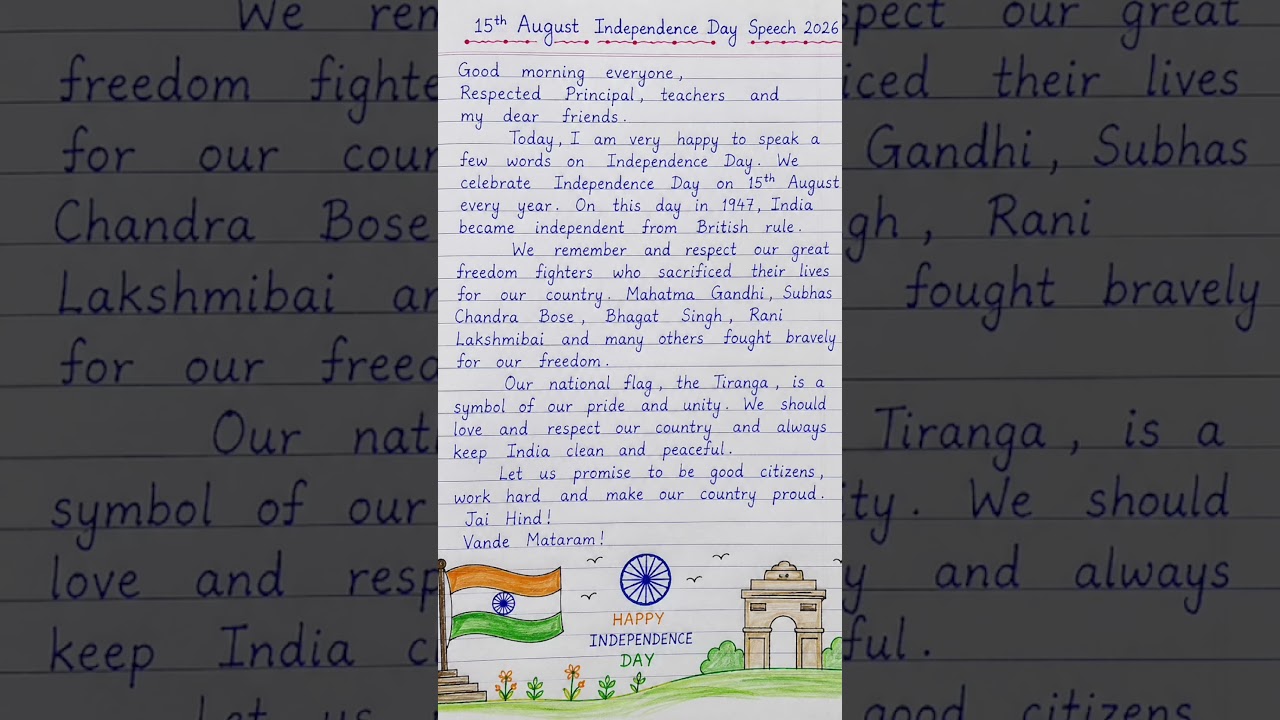 15th August Independence Day Speech 2026
Good morning everyone,
Respected Principal, teachers and
my dear friends.
Today, I am very happy to speak a
few words on Independence Day. We
celebrate Independence Day on 15th August
every year. On this day in 1947, India
became independent from British rule.
We remember and respect our great
freedom fighters who sacrificed their lives
for our country. Mahatma Gandhi, Subhas
Chandra Bose, Bhagat Singh, Rani
Lakshmibai and many others fought bravely
for our freedom.
Our national flag, the Tiranga, is a
symbol of our pride and unity. We should
love and respect our country and always
keep India clean and peaceful.
Let us promise to be good citizens,
work hard and make our country proud.
Jai Hind!
Vande Mataram!
HAPPY
INDEPENDENCE
DAY